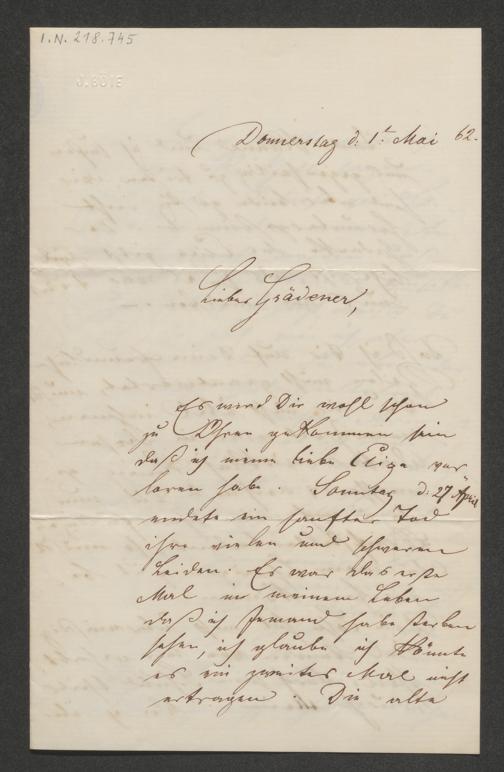 I.N. 218.745
Donnerstag d: 1t Mai 62.
Lieber Grädener,
Es wird Dir wohl schon
zu Ohren gekommen sein
daß ich meine liebe Elise ver
loren habe. Sonntag d: 27 April
endete ein sanfter Tod
ihre vielen und schweren
Leiden. Es war das erste
Mal in meinem Leben
daß ich Jemand habe sterben
sehen, ich glaube ich könnte
es ein zweites Mal nicht
ertragen. Die alte